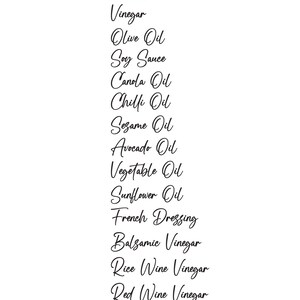 Vinegar
Olive Oil
Soy Sauce
Canola Oil
Chilli Oil
Sesame Oil
Avocado Oil
Vegetable Oil
Sunflower Oil
French Dressing
Balsamic Vinegar
Rice Wine Vinegar
Red Wine Vinegar